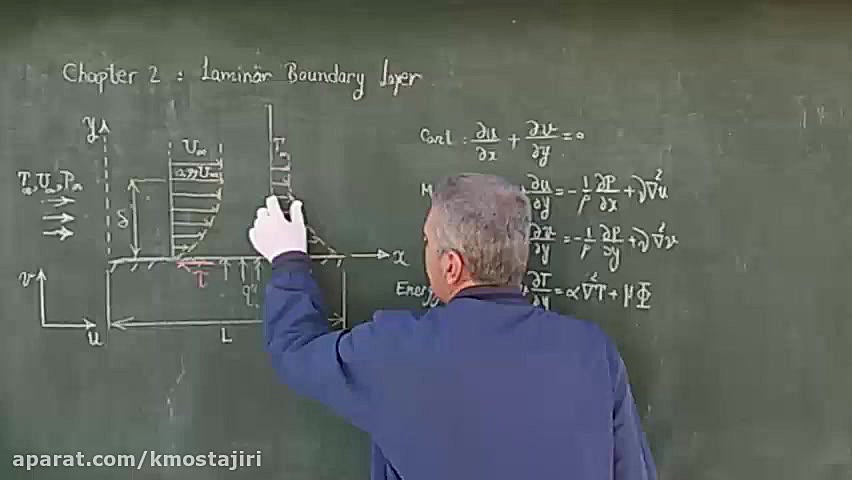 Chapter 2 : Laminar Boundary layer
y
U∞
T∞
0.99U∞
T∞,U∞,P∞
δ
Cont : ∂u/∂x + ∂v/∂y = 0
∂u/∂y = -1/ρ ∂P/∂x + ν∇²u
∂v/∂y = -1/ρ ∂P/∂y + ν∇²v
Energy ∂T/∂y = α∇²T + μΦ
x
v
τ
q"
u
L
aparat.com/kmostajiri